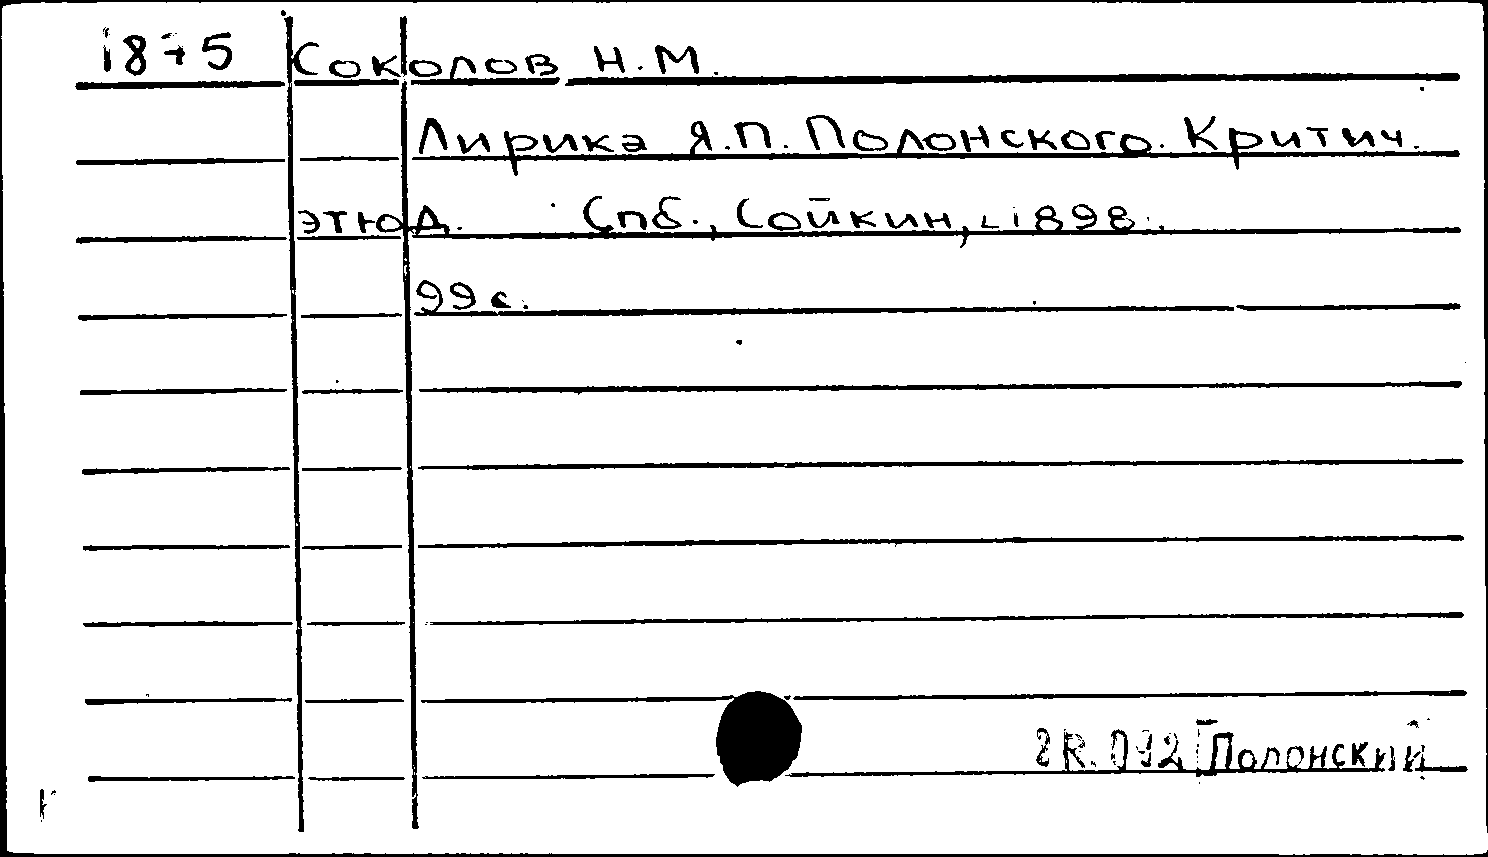 1875 Соколов Н.М.
Лирика Я.П. Полонского. Критич.
этюд. Спб., Сойкин, 1898.
99 с.
8R.092 Полонский